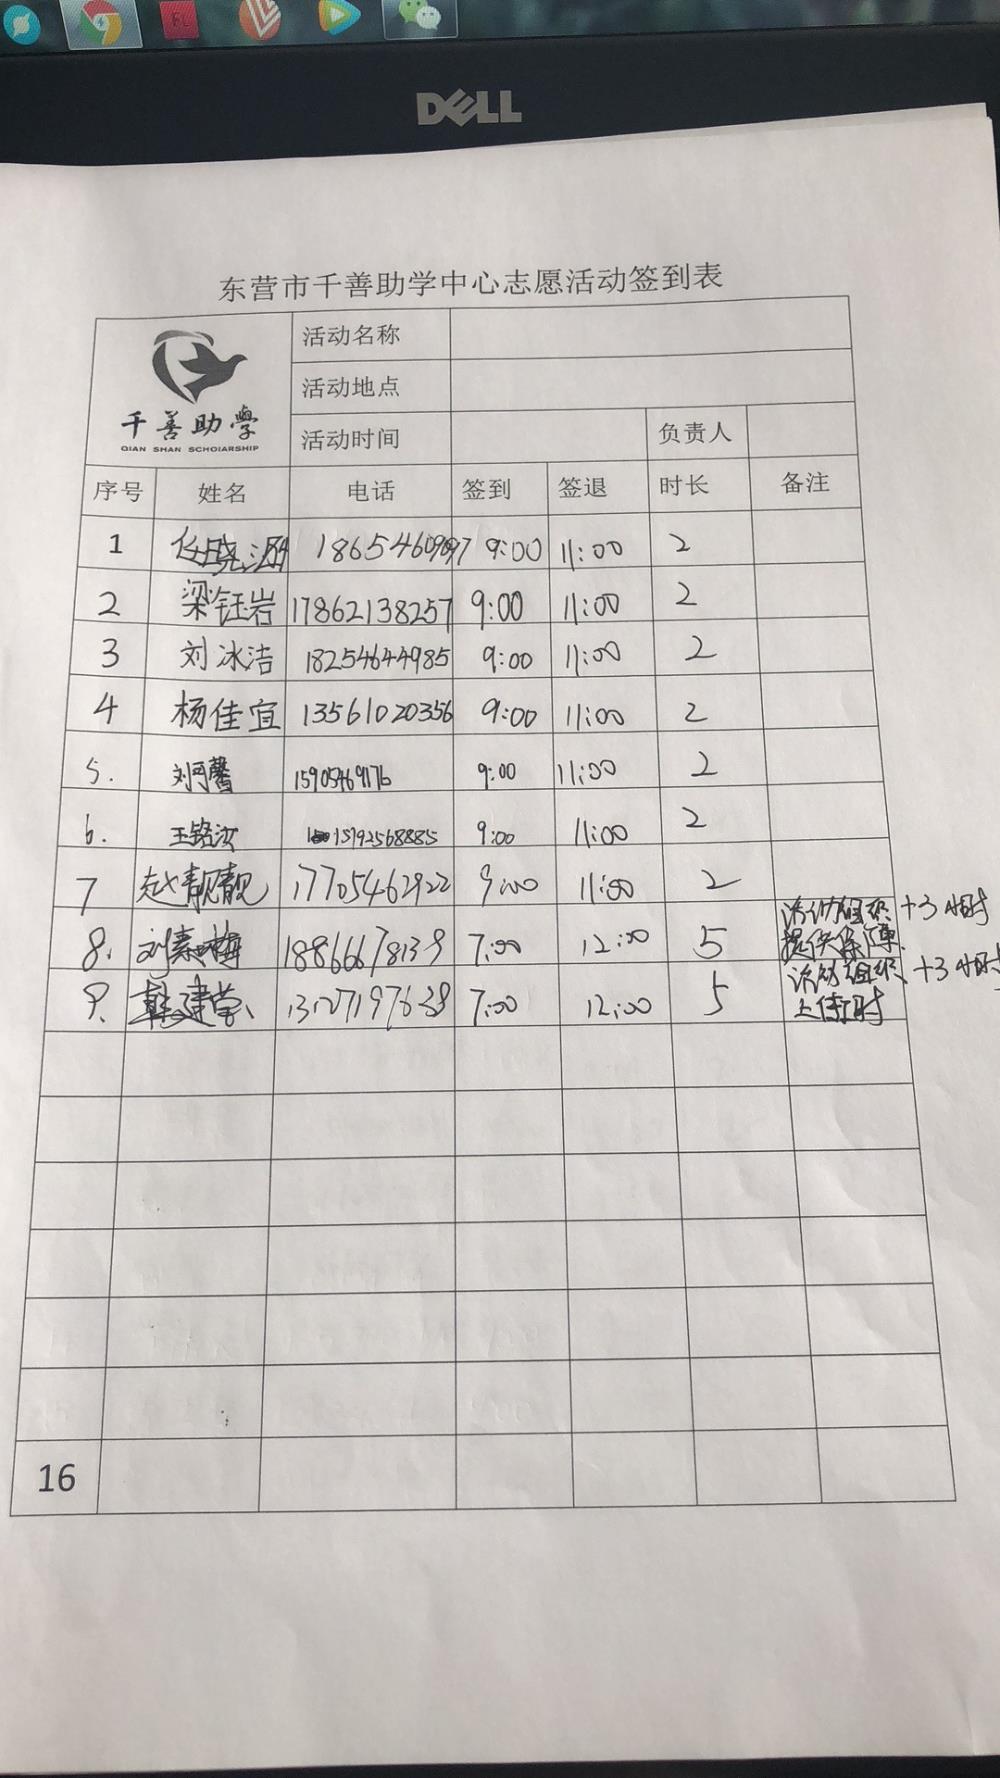 DELL
东营市千善助学中心志愿活动签到表
千善助學
QIAN SHAN SCHOIARSHIP
活动名称
活动地点
活动时间 负责人
序号 姓名 电话 签到 签退 时长 备注
1 任晓 9:00 11:00 2
2 梁钰岩 17862138257 9:00 11:00 2
3 刘冰洁 18254644985 9:00 11:00 2
4 杨佳宜 13561020356 9:00 11:00 2
5. 刘可馨 15905469176 9:00 11:00 2
6. 王铭汝 15192568885 9:00 11:00 2
7 赵靓靓 17705462922 9:00 11:00 2
8. 刘素梅 18866678139 7:00 12:00 5 活动组织 +3小时
提供保障
9. 韩建堂 7:00 12:00 5 活动组织、+3小时
上传时
16